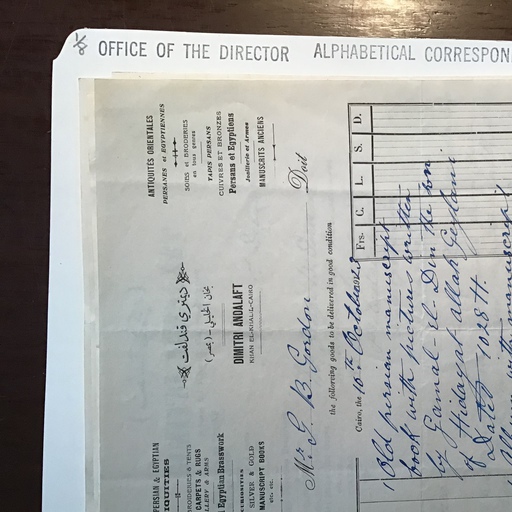 PERSIAN & EGYPTIAN
IQUITIES
BROIDERIES & TENTS
CARPETS & RUGS
LLERY & ARMS
Egyptian Brasswork
CURIOSITIES
SILVER & GOLD
MANUSCRIPT BOOKS
etc. etc.
ديمتري قندلفت
بخان الخليلي - (بمصر)
DIMITRI ANDALAFT
KHAN EL-KHALIL-CAIRO
ANTIQUITÉS ORIENTALES
PERSANES et EGYPTIENNES
SOIES et BRODERIES
en tous genres
TAPIS PERSANS
CUIVRES ET BRONZES
Persans et Egyptiens
Joaillerie et Armes
MANUSCRITS ANCIENS
Mr G. B. Gordon Doit
the following goods to be delivered in good condition
Cairo, the 10th October 1923
Frs. C. L. S. D.
1 Old persian manuscript
book with pictures written
by Gamal-el-Din the son
of Hidayat allah Geylani
Dated 1028 H.
1 Album with manuscript
OFFICE OF THE DIRECTOR ALPHABETICAL CORRESPON